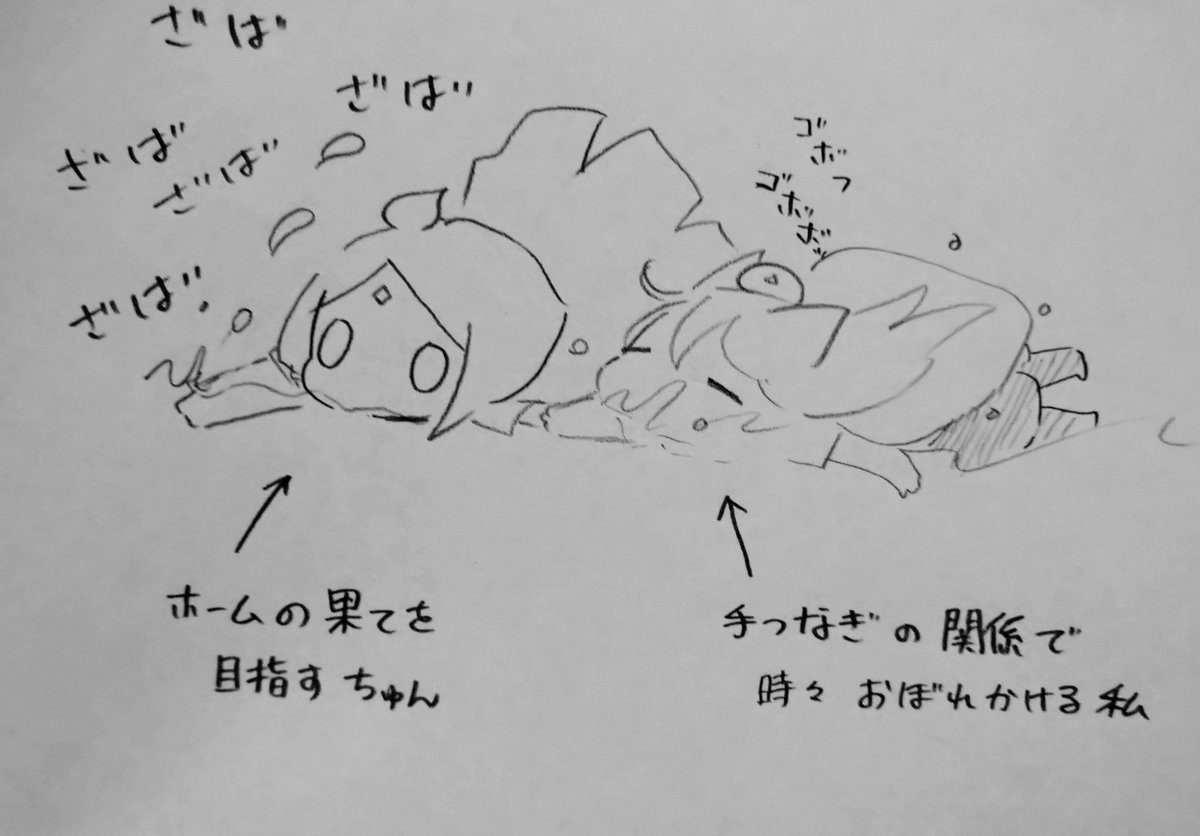 ざば
ざば
ざば
ざば
ざば
ゴボっ
ゴボッボッ
ホームの果てを
目指すちゅん
手つなぎの関係で
時々おぼれかける私